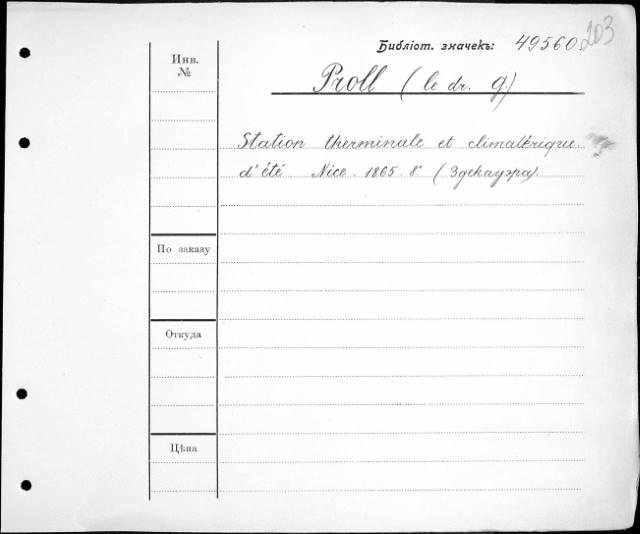 203
Библіот. значекъ: 49560
Инв. №
Proll (le dr. g)
Station therminale et climatérique
d'été. Nice. 1865. 8° (Здекауэра).
По заказу
Откуда
Цѣна